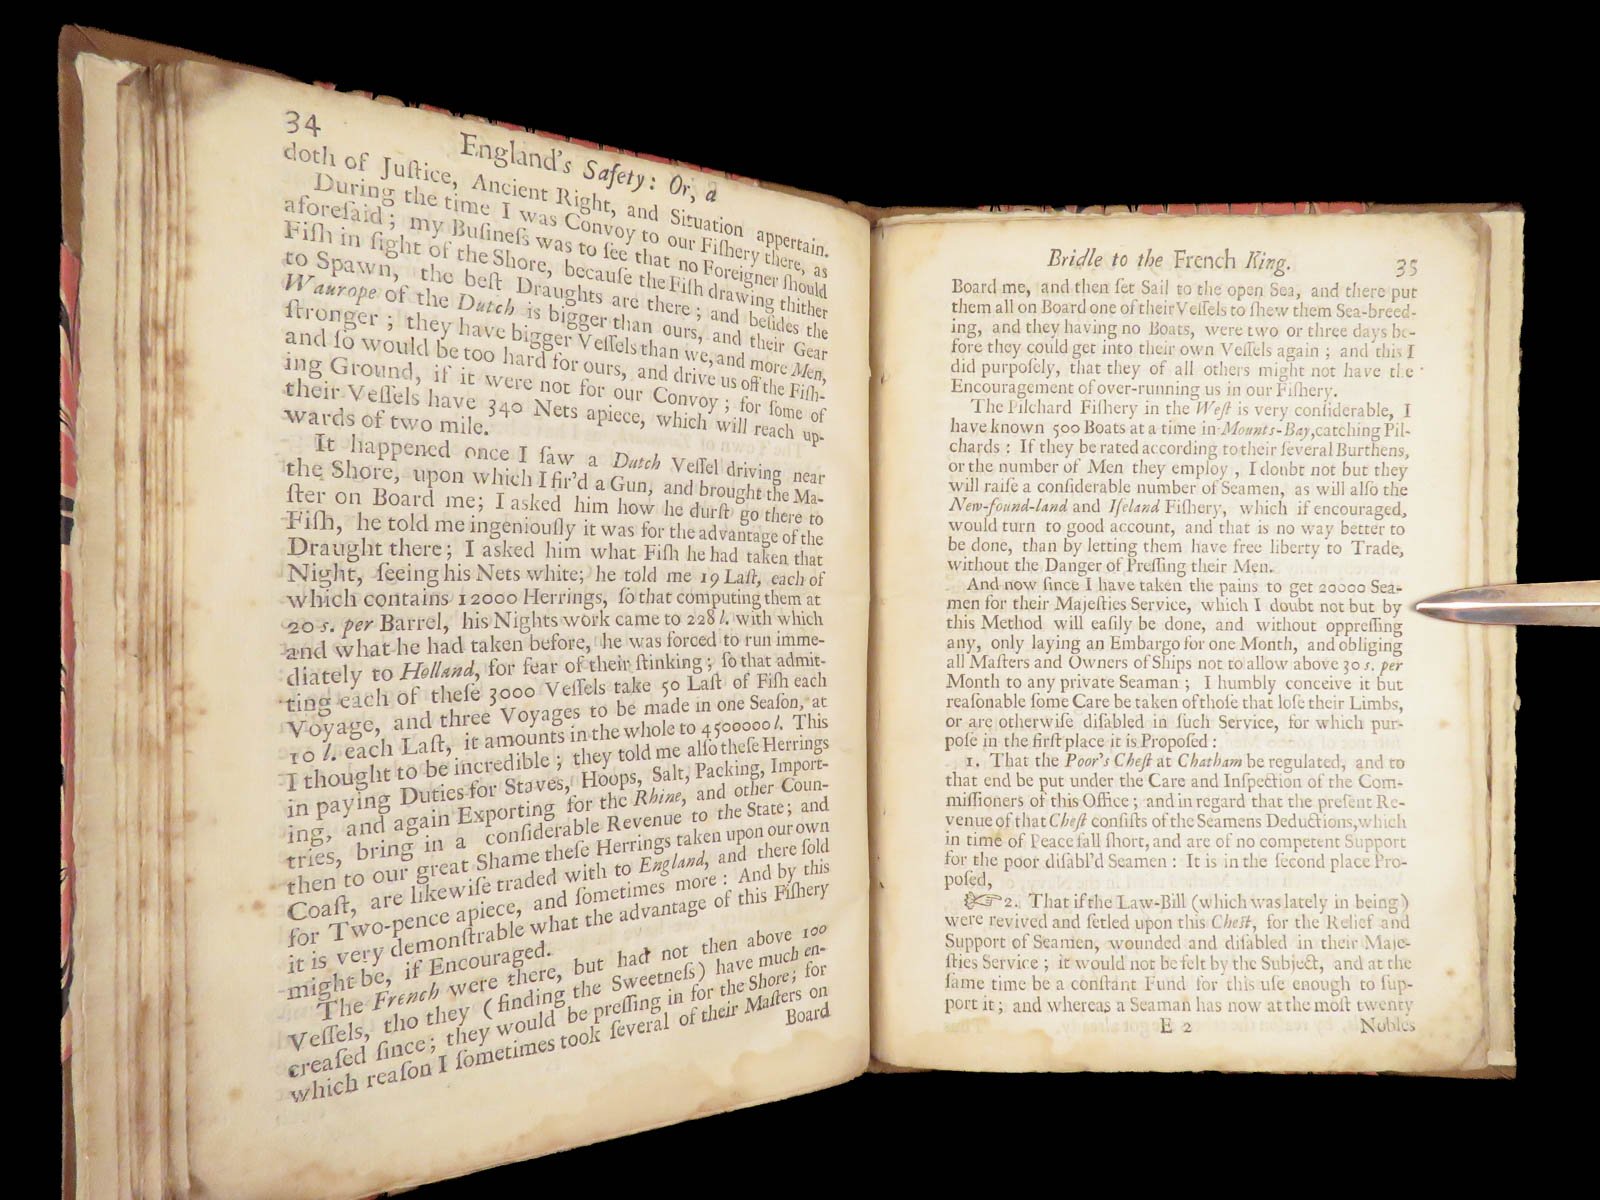 34
England's Safety: Or, a
doth of Juſtice, Ancient Right, and Situation appertain.
During the time I was Convoy to our Fiſhery there, as
aforeſaid; my Buſineſs was to ſee that no Foreigner ſhould
Fiſh in ſight of the Shore, becauſe the Fiſh drawing thither
to Spawn, the beſt Draughts are there; and beſides the
Waurope of the Dutch is bigger than ours, and their Gear
ſtronger; they have bigger Veſſels than we, and more Men,
and ſo would be too hard for ours, and drive us off the Fiſh-
ing Ground, if it were not for our Convoy; for ſome of
their Veſſels have 340 Nets apiece, which will reach up-
wards of two mile.
It happened once I ſaw a Dutch Veſſel driving near
the Shore, upon which I fir'd a Gun, and brought the Ma-
ſter on Board me; I asked him how he durſt go there to
Fiſh, he told me ingeniouſly it was for the advantage of the
Draught there; I asked him what Fiſh he had taken that
Night, ſeeing his Nets white; he told me 19 Laſt, each of
which contains 12000 Herrings, ſo that computing them at
20 s. per Barrel, his Nights work came to 228 l. with which
and what he had taken before, he was forced to run imme-
diately to Holland, for fear of their ſtinking; ſo that admit-
ting each of theſe 3000 Veſſels take 50 Laſt of Fiſh each
Voyage, and three Voyages to be made in one Seaſon, at
10 l. each Laſt, it amounts in the whole to 4500000 l. This
I thought to be incredible; they told me alſo theſe Herrings
in paying Duties for Staves, Hoops, Salt, Packing, Import-
ing, and again Exporting for the Rhine, and other Coun-
tries, bring in a conſiderable Revenue to the State; and
then to our great Shame theſe Herrings taken upon our own
Coaſt, are likewiſe traded with to England, and there ſold
for Two-pence apiece, and ſometimes more: And by this
it is very demonſtrable what the advantage of this Fiſhery
might be, if Encouraged.
The French were there, but had not then above 100
Veſſels, tho they (finding the Sweetneſs) have much en-
creaſed ſince; they would be preſſing in for the Shore; for
which reaſon I ſometimes took ſeveral of their Maſters on
Board
Bridle to the French King. 35
Board me, and then ſet Sail to the open Sea, and there put
them all on Board one of their Veſſels to ſhew them Sea-breed-
ing, and they having no Boats, were two or three days be-
fore they could get into their own Veſſels again; and this I
did purpoſely, that they of all others might not have the
Encouragement of over-running us in our Fiſhery.
The Pilchard Fiſhery in the Weſt is very conſiderable, I
have known 500 Boats at a time in Mounts-Bay, catching Pil-
chards: If they be rated according to their ſeveral Burthens,
or the number of Men they employ, I doubt not but they
will raiſe a conſiderable number of Seamen, as will alſo the
New-found-land and Iſeland Fiſhery, which if encouraged,
would turn to good account, and that is no way better to
be done, than by letting them have free liberty to Trade,
without the Danger of Preſſing their Men.
And now ſince I have taken the pains to get 20000 Sea-
men for their Majeſties Service, which I doubt not but by
this Method will eaſily be done, and without oppreſſing
any, only laying an Embargo for one Month, and obliging
all Maſters and Owners of Ships not to allow above 30 s. per
Month to any private Seaman; I humbly conceive it but
reaſonable ſome Care be taken of thoſe that loſe their Limbs,
or are otherwiſe diſabled in ſuch Service, for which pur-
poſe in the firſt place it is Propoſed:
1. That the Poor's Cheſt at Chatham be regulated, and to
that end be put under the Care and Inſpection of the Com-
miſſioners of this Office; and in regard that the preſent Re-
venue of that Cheſt conſiſts of the Seamens Deductions, which
in time of Peace fall ſhort, and are of no competent Support
for the poor diſabl'd Seamen: It is in the ſecond place Pro-
poſed,
☞ 2. That if the Law-Bill (which was lately in being)
were revived and ſetled upon this Cheſt, for the Relief and
Support of Seamen, wounded and diſabled in their Maje-
ſties Service; it would not be felt by the Subject, and at the
ſame time be a conſtant Fund for this uſe enough to ſup-
port it; and whereas a Seaman has now at the moſt twenty
E 2 Nobles